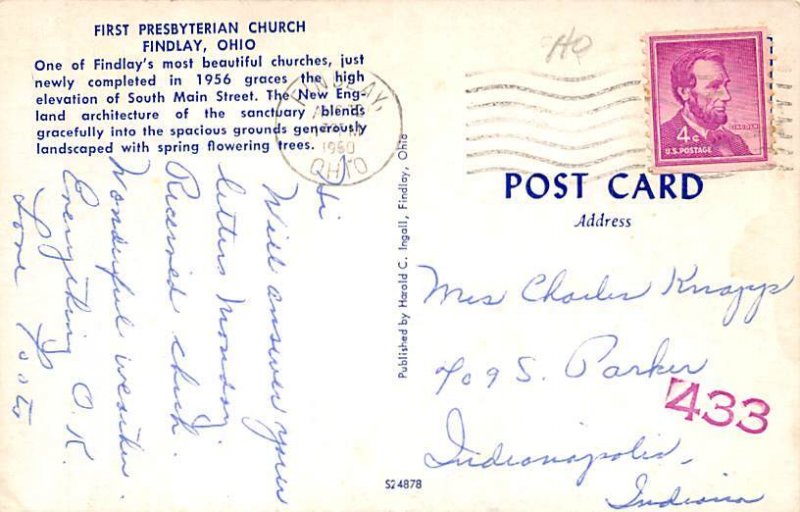 FIRST PRESBYTERIAN CHURCH
FINDLAY, OHIO
One of Findlay's most beautiful churches, just
newly completed in 1956 graces the high
elevation of South Main Street. The New Eng-
land architecture of the sanctuary blends
gracefully into the spacious grounds generously
landscaped with spring flowering trees.
FINDLAY,
1960
OHIO
Hi
Will answer your
letters Monday.
Received check.
Wonderful weather.
Everything O.K.
Love
Published by Harold C. Ingall, Findlay, Ohio
S24878
HO
4¢
LINCOLN
U.S. POSTAGE
POST CARD
Address
Mrs Charles Knapp
709 S. Parker
433
Indianapolis,
Indiana